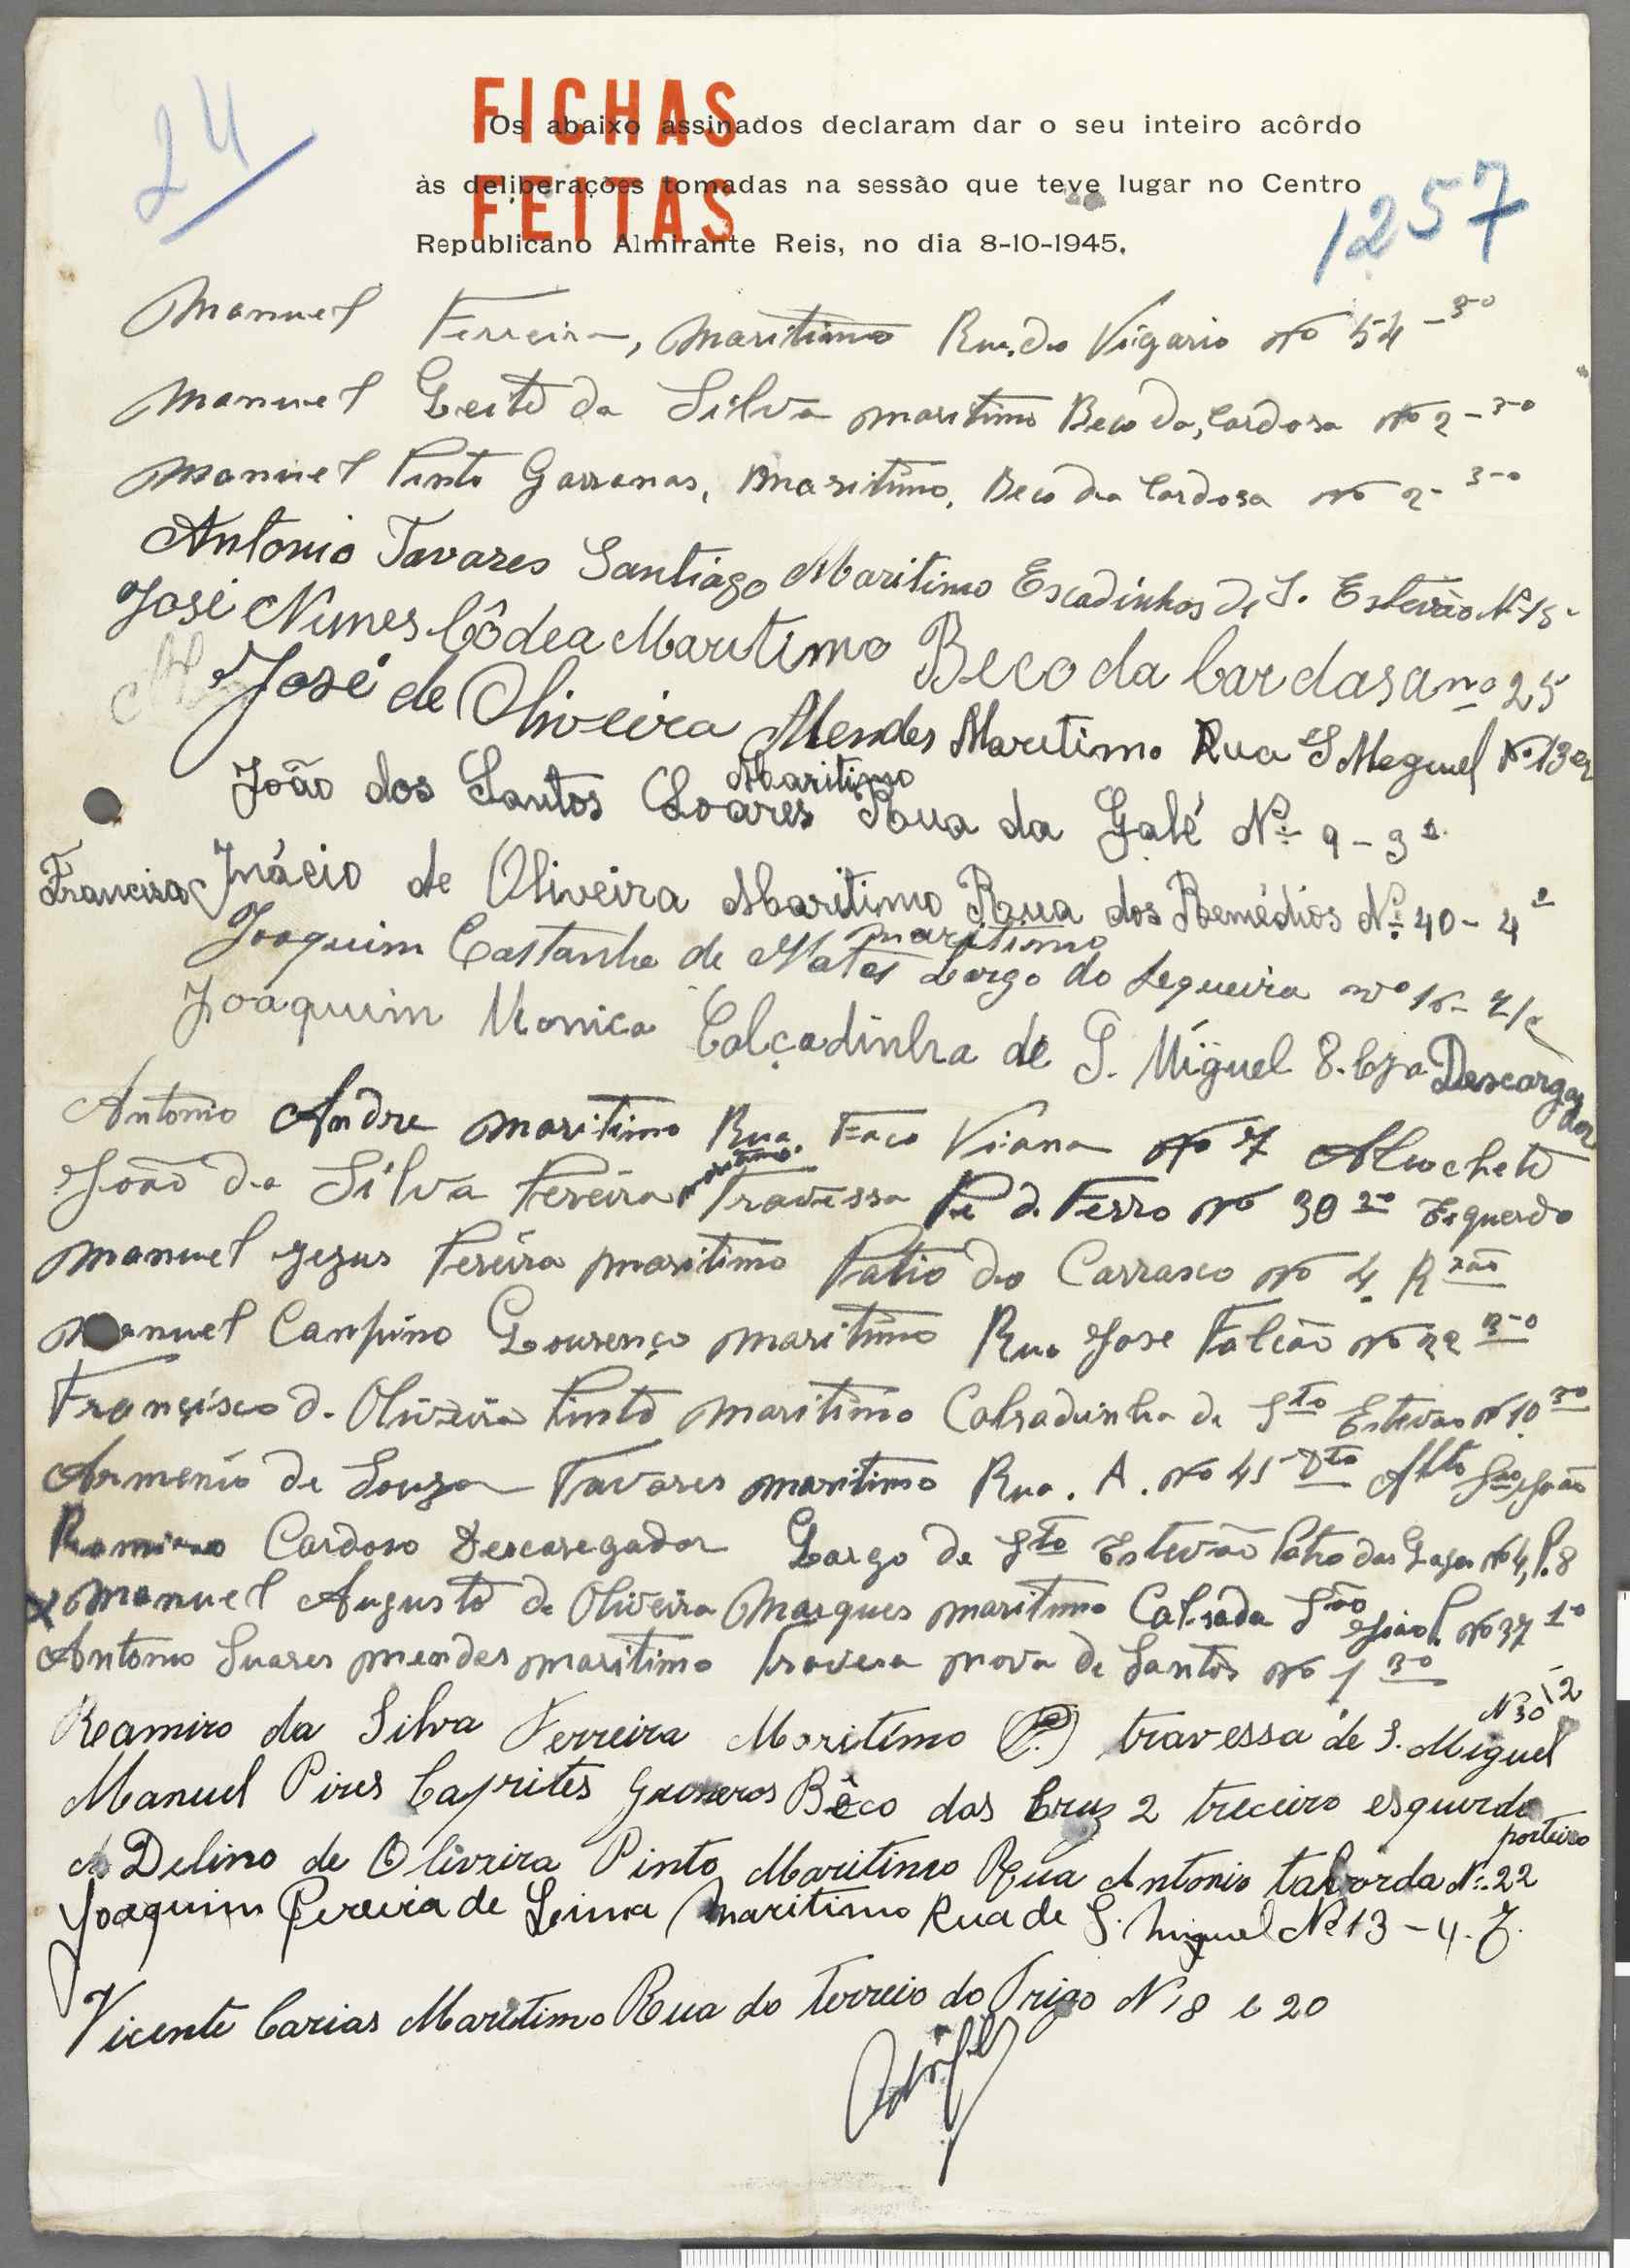 24
FICHAS
FEITAS
Os abaixo assinados declaram dar o seu inteiro acôrdo
às deliberações tomadas na sessão que teve lugar no Centro
Republicano Almirante Reis, no dia 8-10-1945.
1257
Manuel Ferreira, Maritimo Rua do Vigario nº 54 - 3º
Manuel Leite da Silva maritimo Beco da Cardosa nº 2 - 3º
Manuel Pinto Garranas, Maritimo, Beco da Cardosa nº 2 - 3º
Antonio Tavares Santiago Maritimo Escadinhas de S. Estevão Nº 15
José Nunes Côdea Maritimo Beco da Cardasa nº 25
José de Oliveira Mendes Maritimo Rua S Meguel Nº 13
Maritimo
João dos Santos Soares Rua da Galé Nº 9 - 3º
Francisco Inácio de Oliveira Maritimo Rua dos Remédios Nº 40 - 4º
maritimo
Joaquim Castanho de Matos Largo do Sequeira nº 16
Joaquim Monica Calçadinha de S. Miguel 8. Descargador
Antonio Andre maritimo Rua Viana nº 7 Alcochete
maritimo
João da Silva Pereira Travessa Pé de Ferro nº 30 Esquerdo
Manuel Jezus Pereira maritimo Patio do Carrasco nº 4 R
Manuel Canpino Lourenço maritimo Rua Jose Falcão nº 22 3º
Francisco d. Oliveira Pinto maritimo Calsadinha de Sto Estevao nº 10 3º
Armenio de Souza Tavares maritimo Rua. A. nº 45 Dto Alto São João
Ramiro Cardoso Descaregador Largo de Sto Estevão Patio das nº 4, P. 8
x Manuel Augusto de Oliveira Marques maritimo Calsada São João P. nº 37 1º
Antonio Suares mendes maritimo travesa nova de Santos nº 1 3º
Nº 30 12
Reamiro da Silva Ferreira Maritímo travessa de S. Miguel
Manuel Pires Caprites Bêco das Cruz 2 treceiro esquerdo
porteiro
A Delino de Oliveira Pinto Maritimo Rua Antonio taborda Nº 22
Joaquim Pereira de Leima Maritimo Rua de S. Miguel Nº 13 - 4.
Vicente Carias Maritimo Rua do terreio do Trigo N 18 e 20